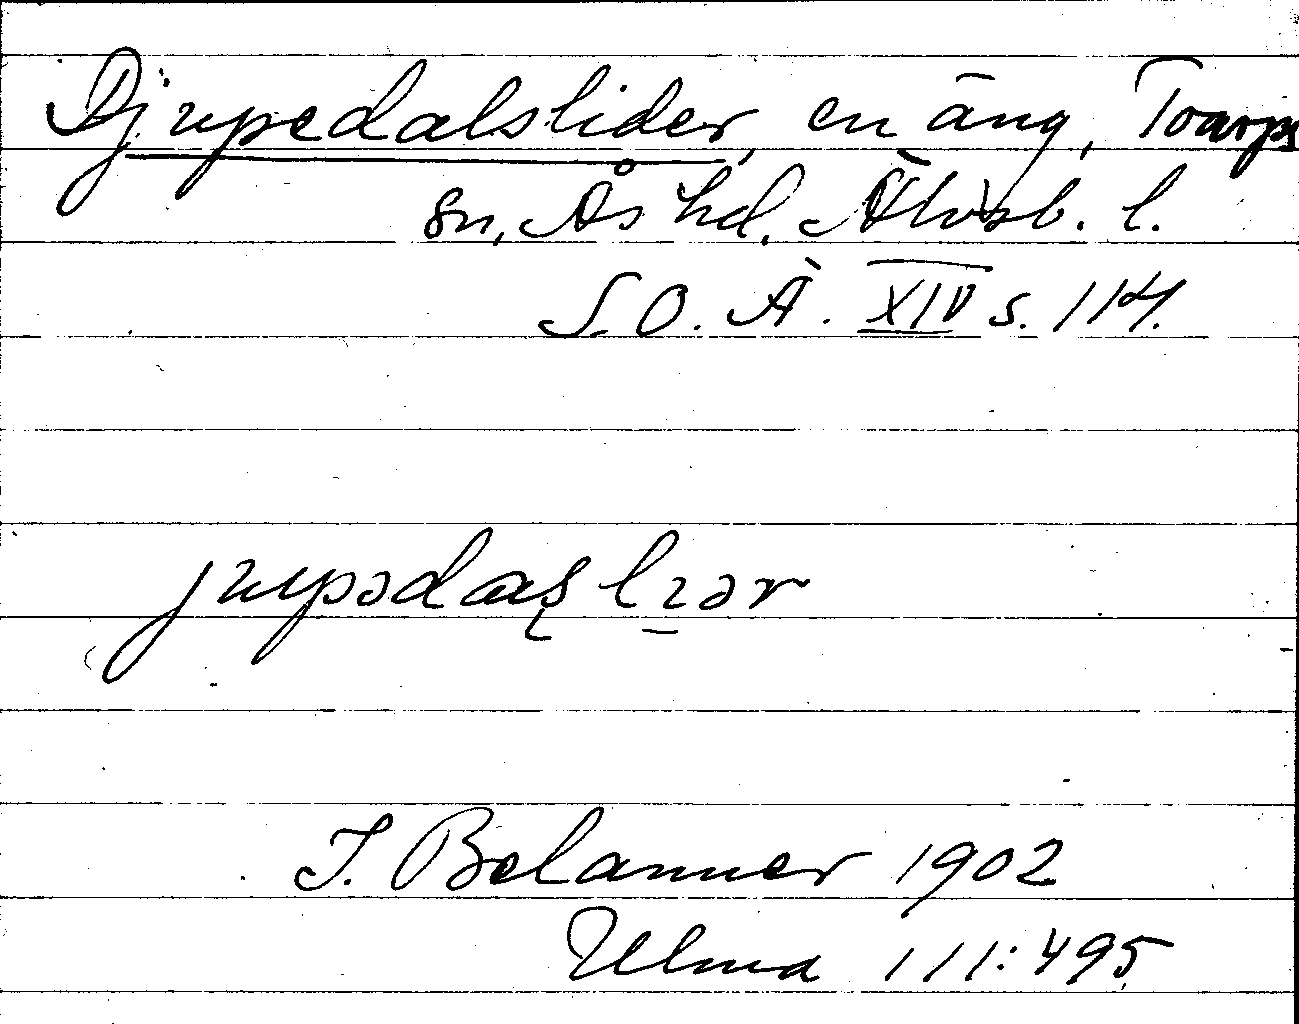 Djupedalslider, en äng, Toarps
sn, Ås hd. Älvsb. l.
S. O. Ä. XIV s. 114.
jupədaʂ lıər
J. Belanner 1902
Ulma 111:495